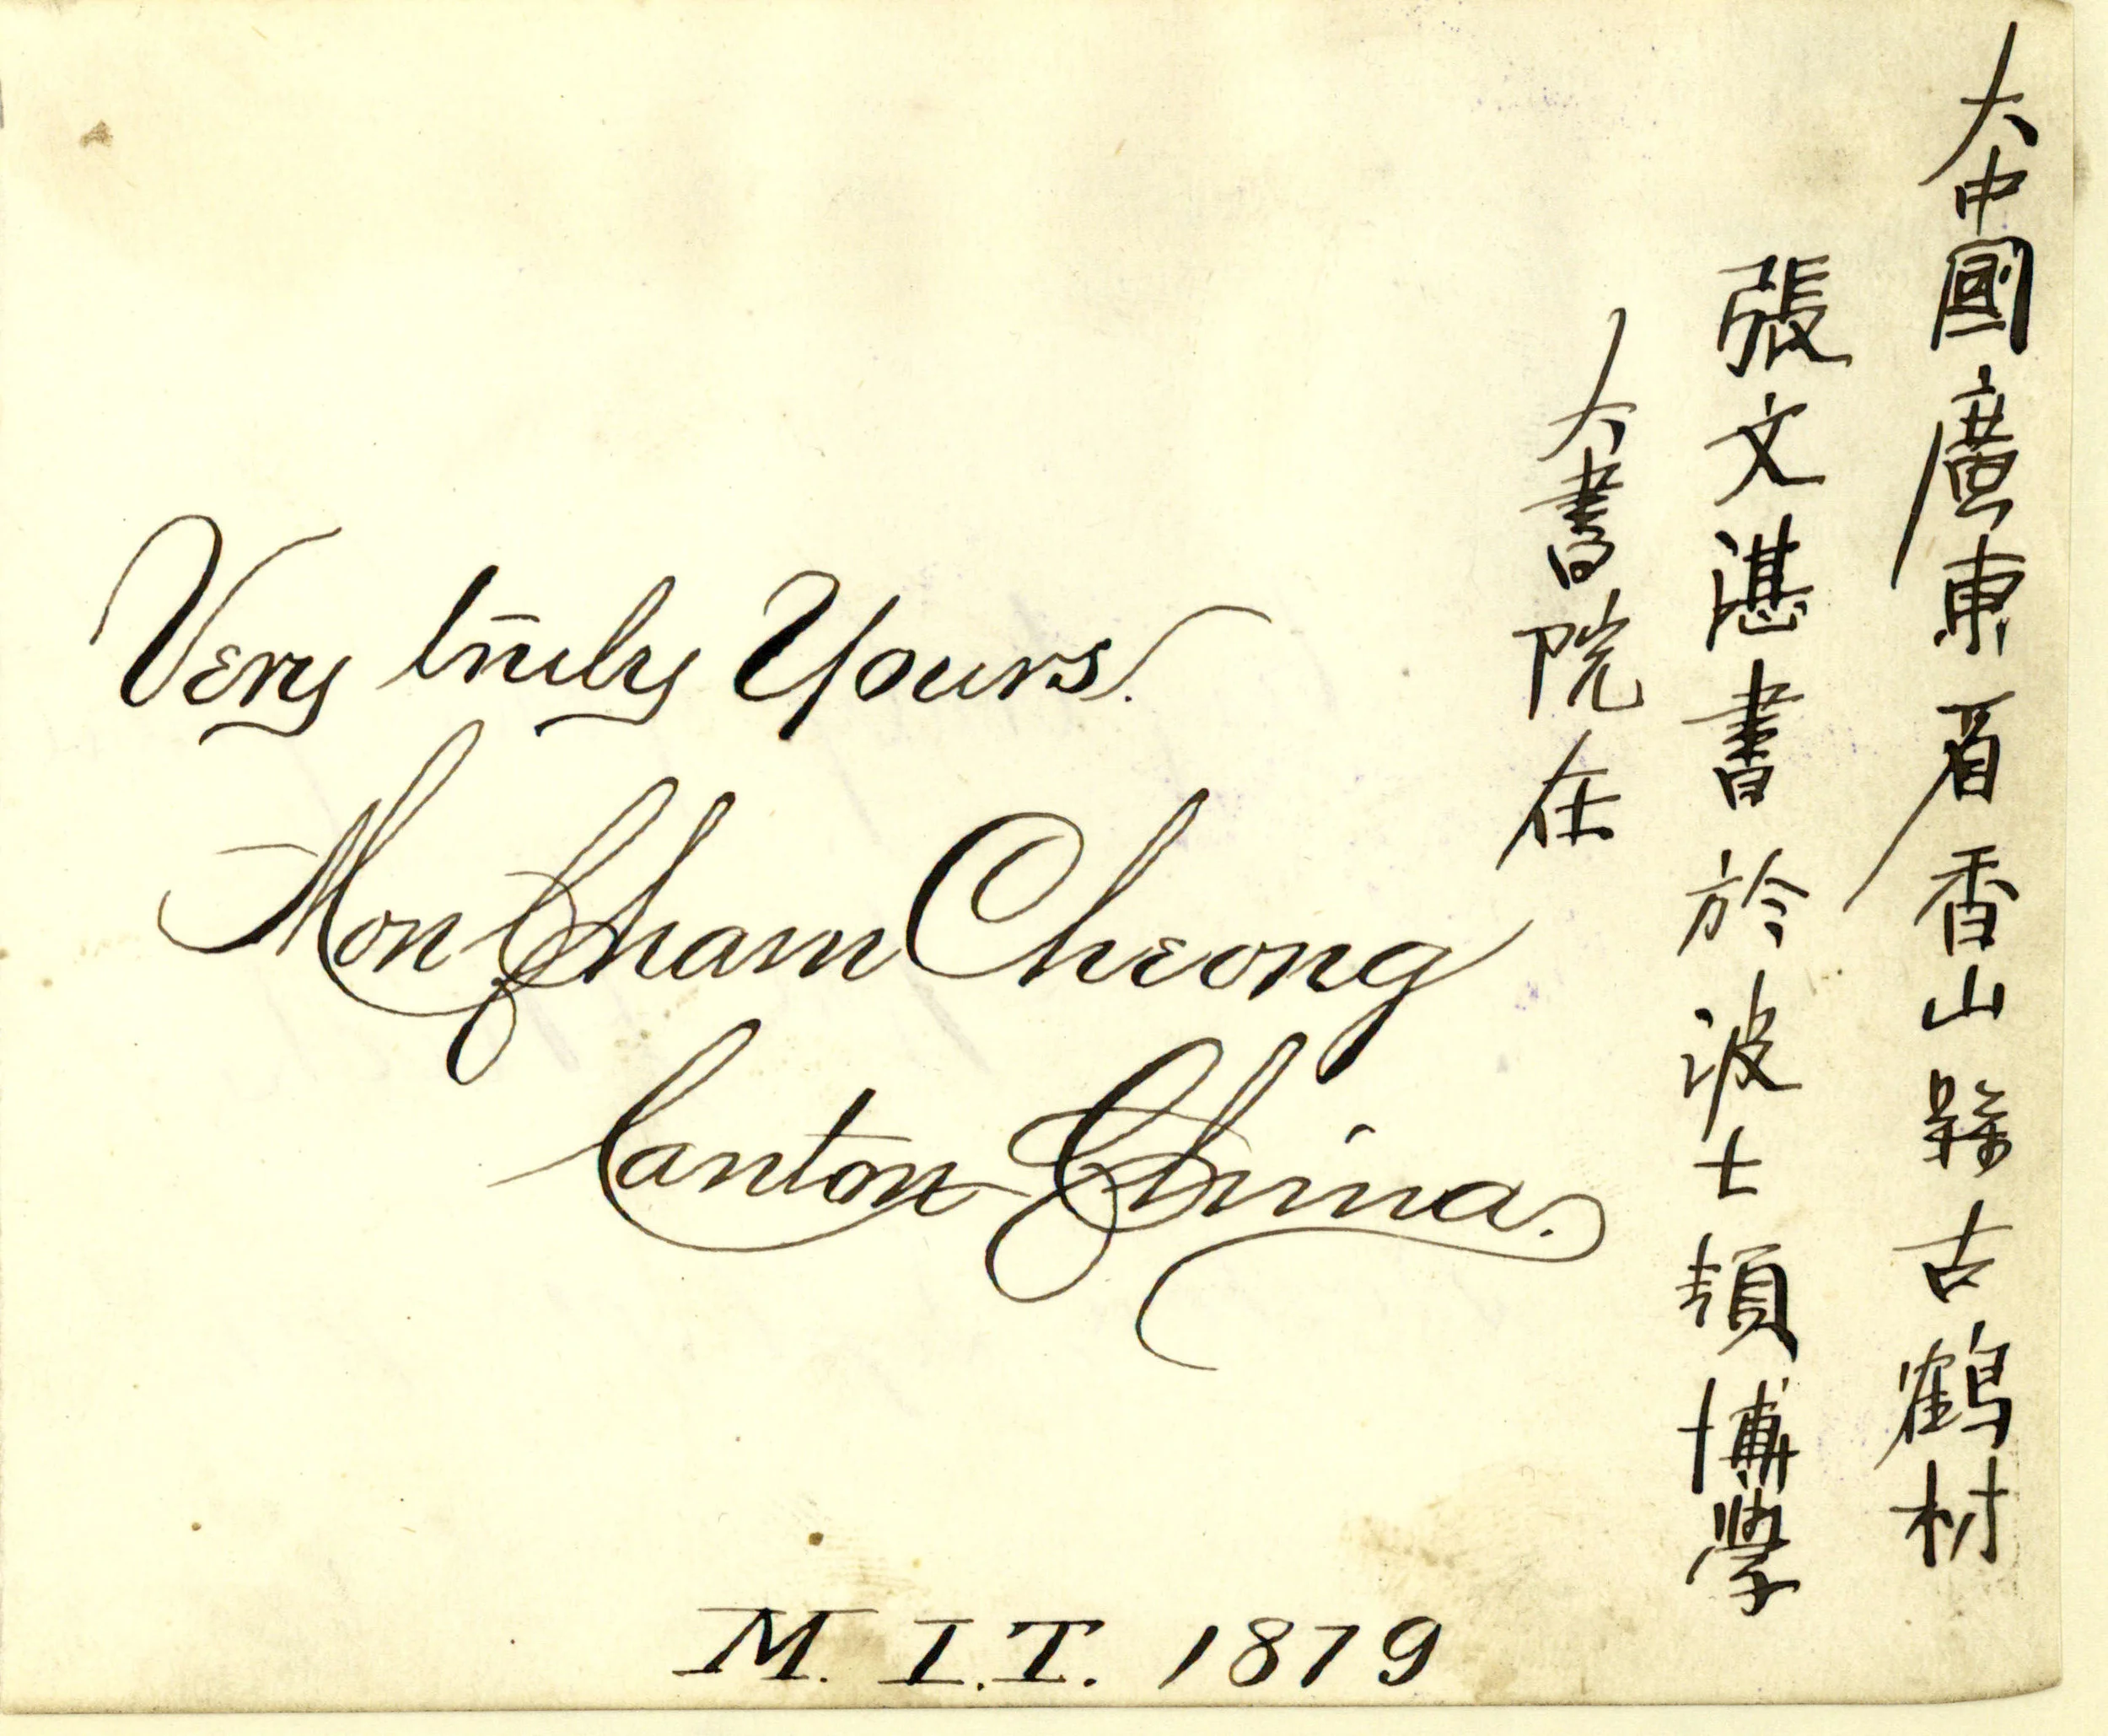 Very truly Yours.
Mon Cham Cheong
Canton China.
M.I.T. 1879
大中國廣東省香山縣古鶴村
張文湛書於波士頓博學
大書院在